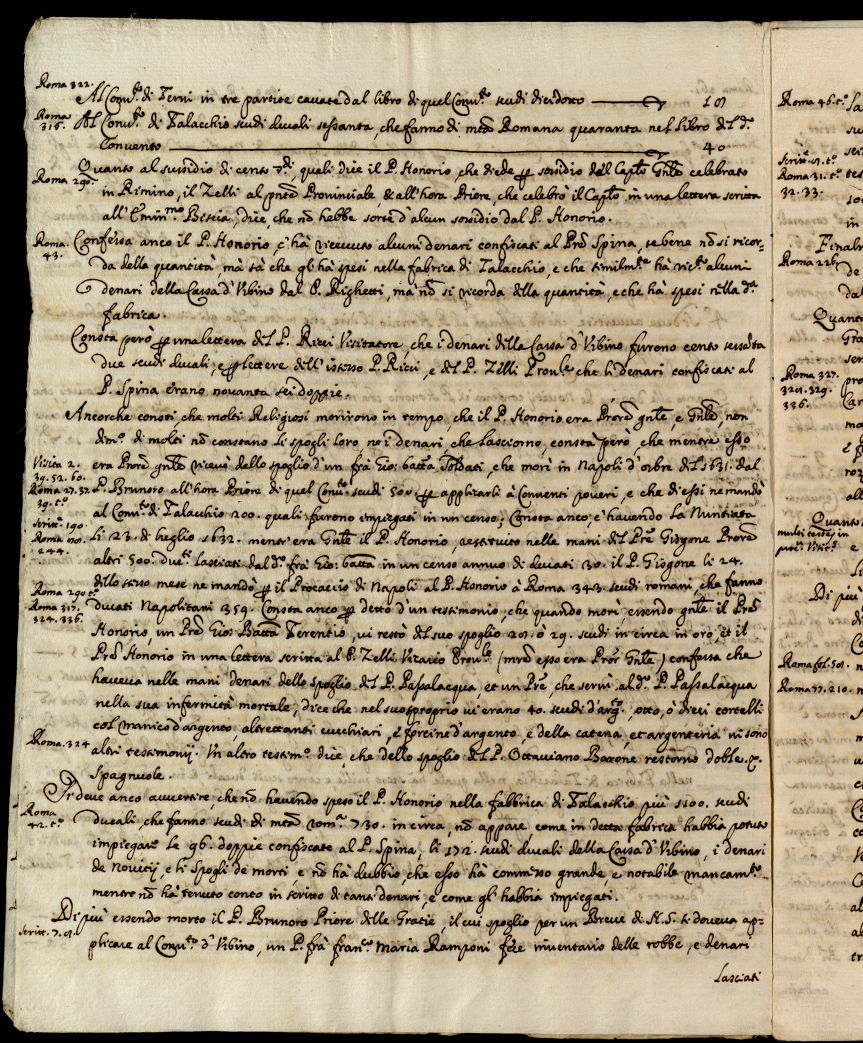 Roma 322.
Al Conv.to di Terni in tre partite cavate dal libro di quel Conv.to scudi dieidotto 18
Roma 316. Al Conv.to di Talacchio scudi ducali sessanta, che fanno di m.ta Romana quaranta nel libro del d.o
Convento 40
Quanto al sussidio di cento quali dice il P. Honorio, che diede sosidio del Cap.lo Gnle celebrato
Roma 290. in Rimino, il Zelli al pnte Provinciale, & all'hora Priore, che celebrò il Cap.lo, in una lettera scritta
all' Emin.mo Bescia, dice, che nõ hebbe sorte d'alcun sosidio dal P. Honorio.
Roma. 43. Confessa anco il P. Honorio, c'hà ricevuto alcuni denari confiscati al Prẽ Spina, se bene nõ si ricor-
da della quantità, mà sà che gli hà spesi nella fabrica di Talacchio, e che similm.te hà ric.to alcuni
denari della Cassa d'Urbino dal P. Righetti, ma nõ si ricorda della quantità, e che hà spesi nella d.a
fabrica.
Consta però una lettera del P. Ricci Visitatore, che i denari della Cassa d'Urbino furono cento sessanta
due scudi ducali, e lettere dell'istesso P. Ricci, e del P. Zelli Prou.le che li denari confiscati al
P. Spina erano novanta sei doppie.
Ancorche consti, che molti Religiosi morirono in tempo, che il P. Honorio era Prõre gnle, e Gnle, non
dim.o di molti nõ constano li spogli loro, ne i denari che lasciorno, consta però, che mentre esso
Visita 2. 39. 52. 60. era Prore gnle ricevè dello spoglio d'un frà Gio: batta Soldati, che morì in Napoli d'8bre del 1631. dal
Roma 27. 32. 39. t.o P. Brunoro all'hora Priore di quel Conv.to scudi 500. applicarli à Conventi poveri, e che di essi ne mandò
al Conv.to di Talacchio 200. quali furono impiegati in un censo; Consta anco, c'havendo la Nuntiata
Scritt. 190. Roma 244. li 23. di luglio 1632. mentr'era Gnle il P. Honorio, restituito nelle mani del Prẽ Gisgone Prore
altri 500. duc.ti lasciati dal d.o frà Gio: batta in un censo annuo di ducati 30. il P. Gisgone li 24.
dello stesso mese ne mandò il Procaccio di Napoli al P. Honorio à Roma 343. scudi romani, che fanno
Roma 290. t.o Roma 317. 324. 336. ducati Napolitani 359. Consta anco detto d'un testimonio, che quando morì, essendo gnle il Prẽ
Honorio, un Prẽ Gio: Batta Terentio, vi restò del suo spoglio 28. ò 29. scudi in circa in oro, et il
Prẽ Honorio in una lettera scritta al P. Zelli Vicario Prou.le (mrẽ esso era Prõr Gnle) confessa che
haveva nelle mani denari dello spoglio del P. Passalacqua, et un Prẽ, che servì al d.o P. Passalacqua
nella sua infermità mortale, dice che nel suo proprio vi erano 40. scudi d'arg.to, otto, ò dieci cortelli
col manico d'argento, altrettanti cucchiari, e forcine d'argento, e della catena, et argenteria vi sono
Roma. 324 altri testimonij. Un altro testim.o dice, che dello spoglio del P. Ottaviano Barone restorno doble.
Spagnuole.
Si deve anco avvertire, che nõ havendo speso il P. Honorio nella fabbrica di Talacchio più 1100. scudi
Roma 42. t.o ducali, che fanno scudi di m.ta rom.a 730. in circa, nõ appare come in detta fabrica habbia potuto
impiegare le 96. doppie confiscate al P. Spina, li 172. scudi ducali della Cassa d'Urbino, i denari
de Novitij, e li spogli de morti e nõ hà dubbio, che esso hà commesso grande e notabile mancam.to
mentre nõ hà tenuto conto in scritto di tanti denari, e come gli habbia impiegati.
Di più essendo morto il P. Brunoro Priore delle Gratie, il cui spoglio per un Breve di N.S. si doveva ap=
plicare al Conv.to d'Urbino, un P. frà fran.co Maria Ramponi fece inventario delle robbe, e denari
lasciati
Roma 46. t.o
Roma 31. t.o
32. 33.
Finalm
Roma 226.
Quanto
Roma 327. 328. 329.
336.
Quanto
multi testes in
Di più
Roma fol. 501.
Roma 77. 210.